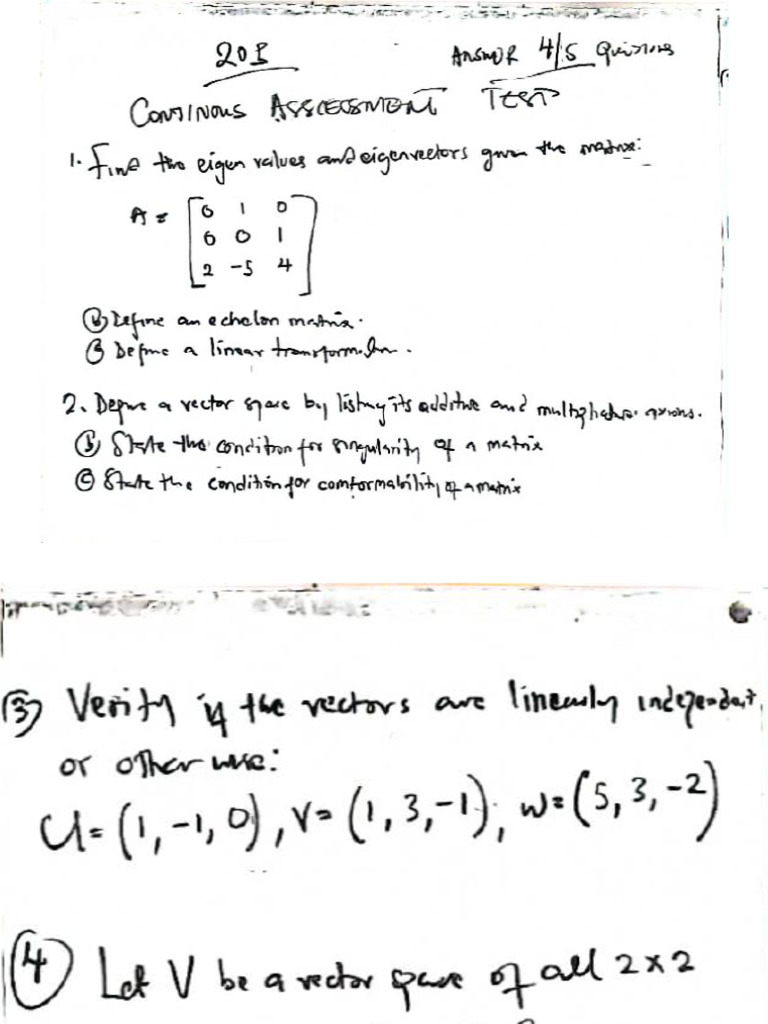 201
ANSWER 4/5 Questions
CONTINOUS ASSCESSMENT TEST
1. Find the eigen values and eigenvectors given the matrix:
A = [0 1 0
0 0 1
2 -5 4]
(b) Define an echelon matrix.
(c) Define a linear transformation.
2. Define a vector space by listing its additive and multiplicative axioms.
(b) State the condition for singularity of a matrix
(c) State the condition for comformability of a matrix
(3) Verify if the vectors are linearly independent,
or otherwise:
U=(1,-1,0), V=(1,3,-1), W=(5,3,-2)
(4) Let V be a vector space of all 2x2